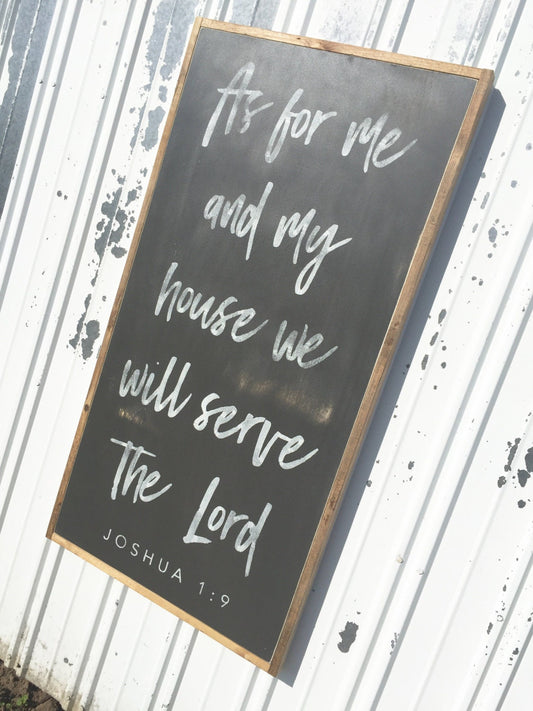 As for me
and my
house we
will serve
The Lord
JOSHUA 1:9